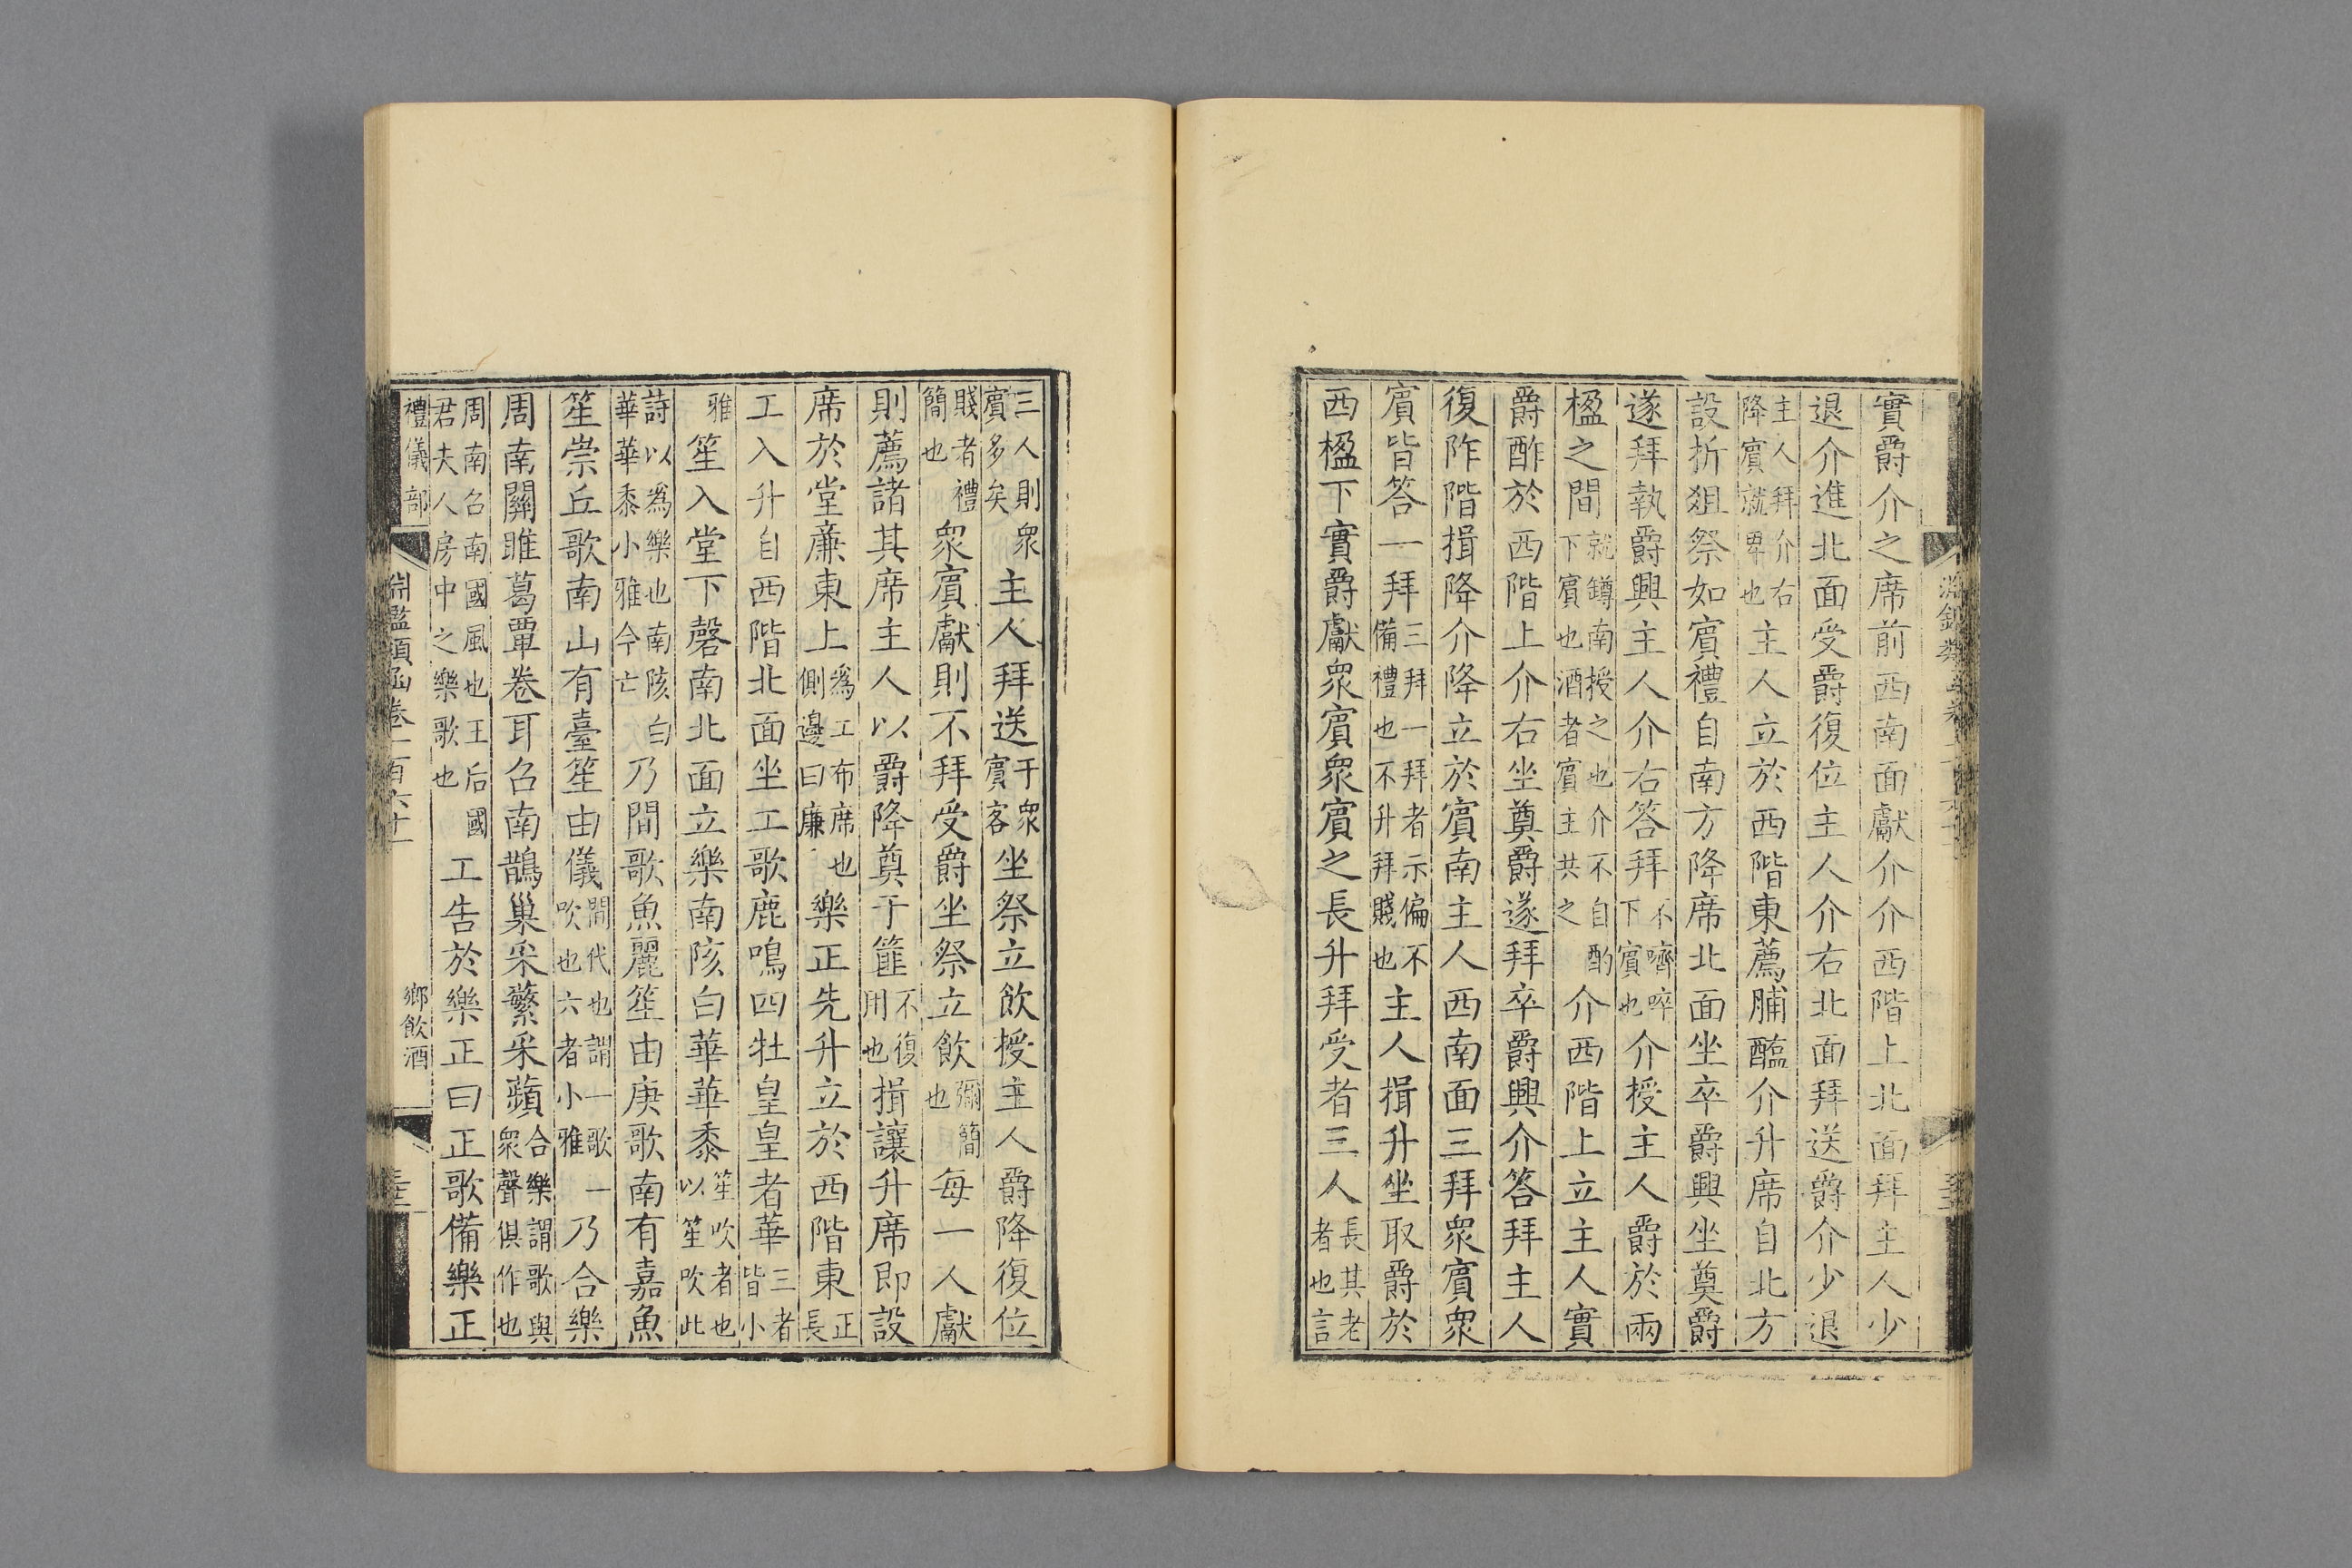 實爵介之席前西南面獻介介西階上北面拜主人少
退介進北面受爵復位主人介右北面拜送爵介少退
主人拜介右降賓就卑也主人立於西階東薦脯醢介升席自北方
設折俎祭如賓禮自南方降席北面坐卒爵興坐奠爵
遂拜執爵興主人介右答拜不嚌啐下賓也介授主人爵於兩
楹之間就鐏南授之也介不自酌下賓也酒者賓主共之介西階上立主人實
爵酢於西階上介右坐奠爵遂拜卒爵興介答拜主人
復阼階揖降介降立於賓南主人西南面三拜衆賓衆
賓皆答一拜三拜一拜者示徧不備禮也不升拜賤也主人揖升坐取爵於
西楹下實爵獻衆賓衆賓之長升拜受者三人長其老者也言
三人則衆賓多矣主人拜送于衆賓客坐祭立飲授主人爵降復位
賤者禮簡也衆賓獻則不拜受爵坐祭立飲彌簡也每一人獻
則薦諸其席主人以爵降奠于篚不復用也揖讓升席即設
席於堂廉東上爲工布席也側邊曰廉樂正先升立於西階東正長
工入升自西階北面坐工歌鹿鳴四牡皇皇者華三者皆小
雅笙入堂下磬南北面立樂南陔白華華黍笙吹者也以笙吹此
詩以爲樂也南陔白華華黍小雅今亡乃間歌魚麗笙由庚歌南有嘉魚
笙崇丘歌南山有臺笙由儀間代也謂一歌一吹也六者小雅乃合樂
周南關雎葛覃卷耳召南鵲巢采蘩采蘋合樂謂歌與衆聲俱作也
周南召南國風也王后國君夫人房中之樂歌也工告於樂正曰正歌備樂正
禮儀部
淵鑑類函卷一百六十一
鄉飲酒